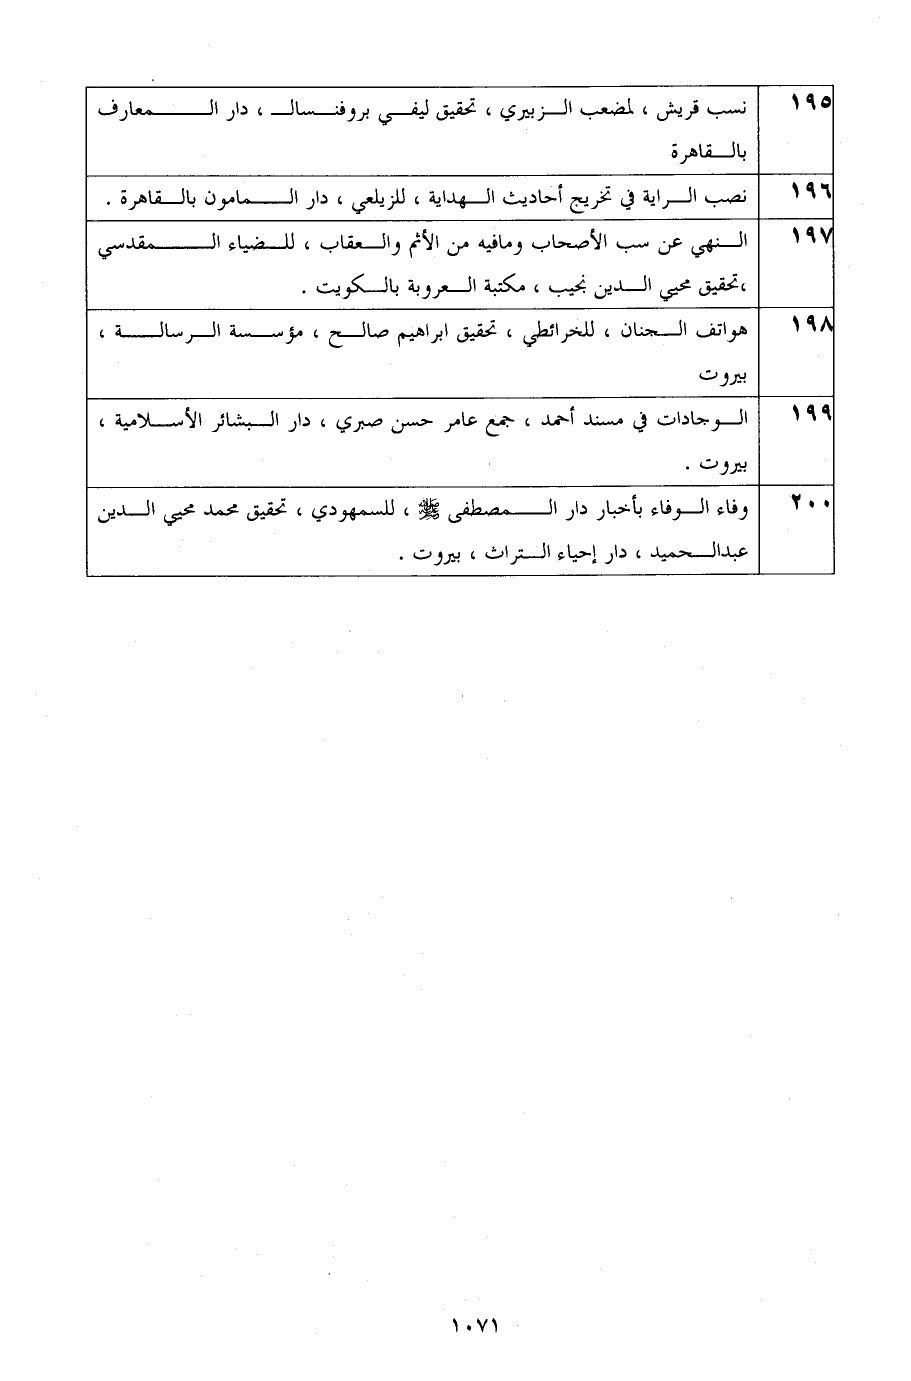 ١٩٥ نسب قريش ، لمضعب الزبيري ، تحقيق ليفي بروفنسالـ ، دار المعارف
بالقاهرة
١٩٦ نصب الراية في تخريج أحاديث الهداية ، للزيلعي ، دار المامون بالقاهرة .
١٩٧ النهي عن سب الأصحاب ومافيه من الأثم والعقاب ، للضياء المقدسي
،تحقيق محيي الدين نجيب ، مكتبة العروبة بالكويت .
١٩٨ هواتف الجنان ، للخرائطي ، تحقيق ابراهيم صالح ، مؤسسة الرسالة ،
بيروت
١٩٩ الوجادات في مسند أحمد ، جمع عامر حسن صبري ، دار البشائر الأسلامية ،
بيروت .
٢٠٠ وفاء الوفاء بأخبار دار المصطفى ﷺ ، للسمهودي ، تحقيق محمد محيي الدين
عبدالحميد ، دار إحياء التراث ، بيروت .
١٠٧١